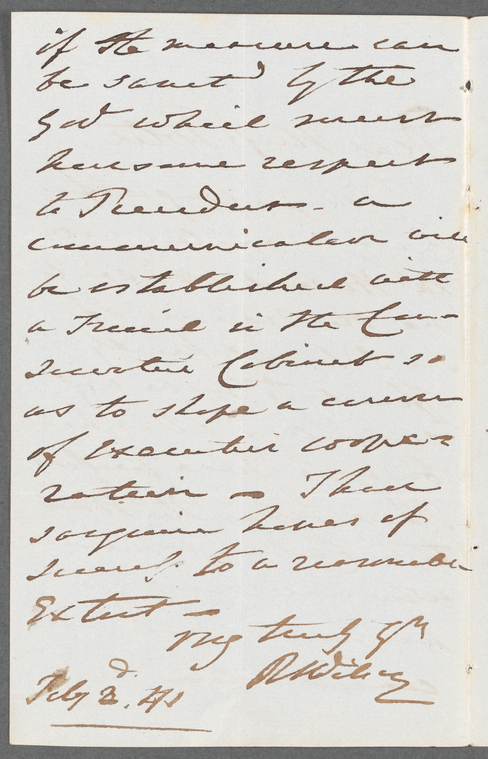 if the measure can
be sanctd by the
Govt which must
have some respect
to Precedents - a
communication will
be established with
a Friend in the Con-
servative Cabinet so
as to shape a course
of Executive coope-
ration - I have
sanguine hopes of
success to a reasonable
Extent -
very truly yrs
Feby 3d. 41